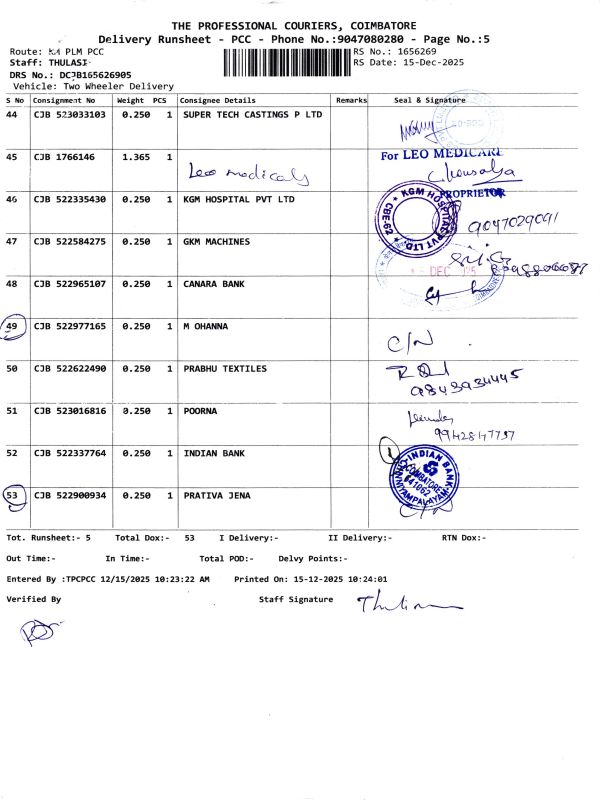 THE PROFESSIONAL COURIERS, COIMBATORE
Delivery Runsheet - PCC - Phone No.:9047080280 - Page No.:5
Route: KA PLM PCC
RS No.: 1656269
Staff: THULASI
RS Date: 15-Dec-2025
DRS No.: DCJB165626905
Vehicle: Two Wheeler Delivery
S No Consignment No Weight PCS Consignee Details Remarks Seal & Signature
44 CJB 523033103 0.250 1 SUPER TECH CASTINGS P LTD
45 CJB 1766146 1.365 1 Leo medicals
For LEO MEDICARE
PROPRIETOR
46 CJB 522335430 0.250 1 KGM HOSPITAL PVT LTD
KGM HOSPITAL PVT LTD. CBE-62
9047029091
47 CJB 522584275 0.250 1 GKM MACHINES
DEC
48 CJB 522965107 0.250 1 CANARA BANK
49 CJB 522977165 0.250 1 M OHANNA C/N
50 CJB 522622490 0.250 1 PRABHU TEXTILES
9843934445
51 CJB 523016816 0.250 1 POORNA
52 CJB 522337764 0.250 1 INDIAN BANK
INDIAN BANK
COIMBATORE
641062
CHINNIYAMPALAYAM
53 CJB 522900934 0.250 1 PRATIVA JENA C/N
Tot. Runsheet:- 5 Total Dox:- 53 I Delivery:- II Delivery:- RTN Dox:-
Out Time:- In Time:- Total POD:- Delvy Points:-
Entered By :TPCPCC 12/15/2025 10:23:22 AM Printed On: 15-12-2025 10:24:01
Verified By Staff Signature